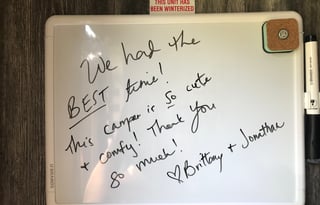 THIS UNIT HAS
BEEN WINTERIZED
We had the
BEST time!
This camper is So cute
+ comfy! Thank You
so much!
♡Brittany + Jonathan